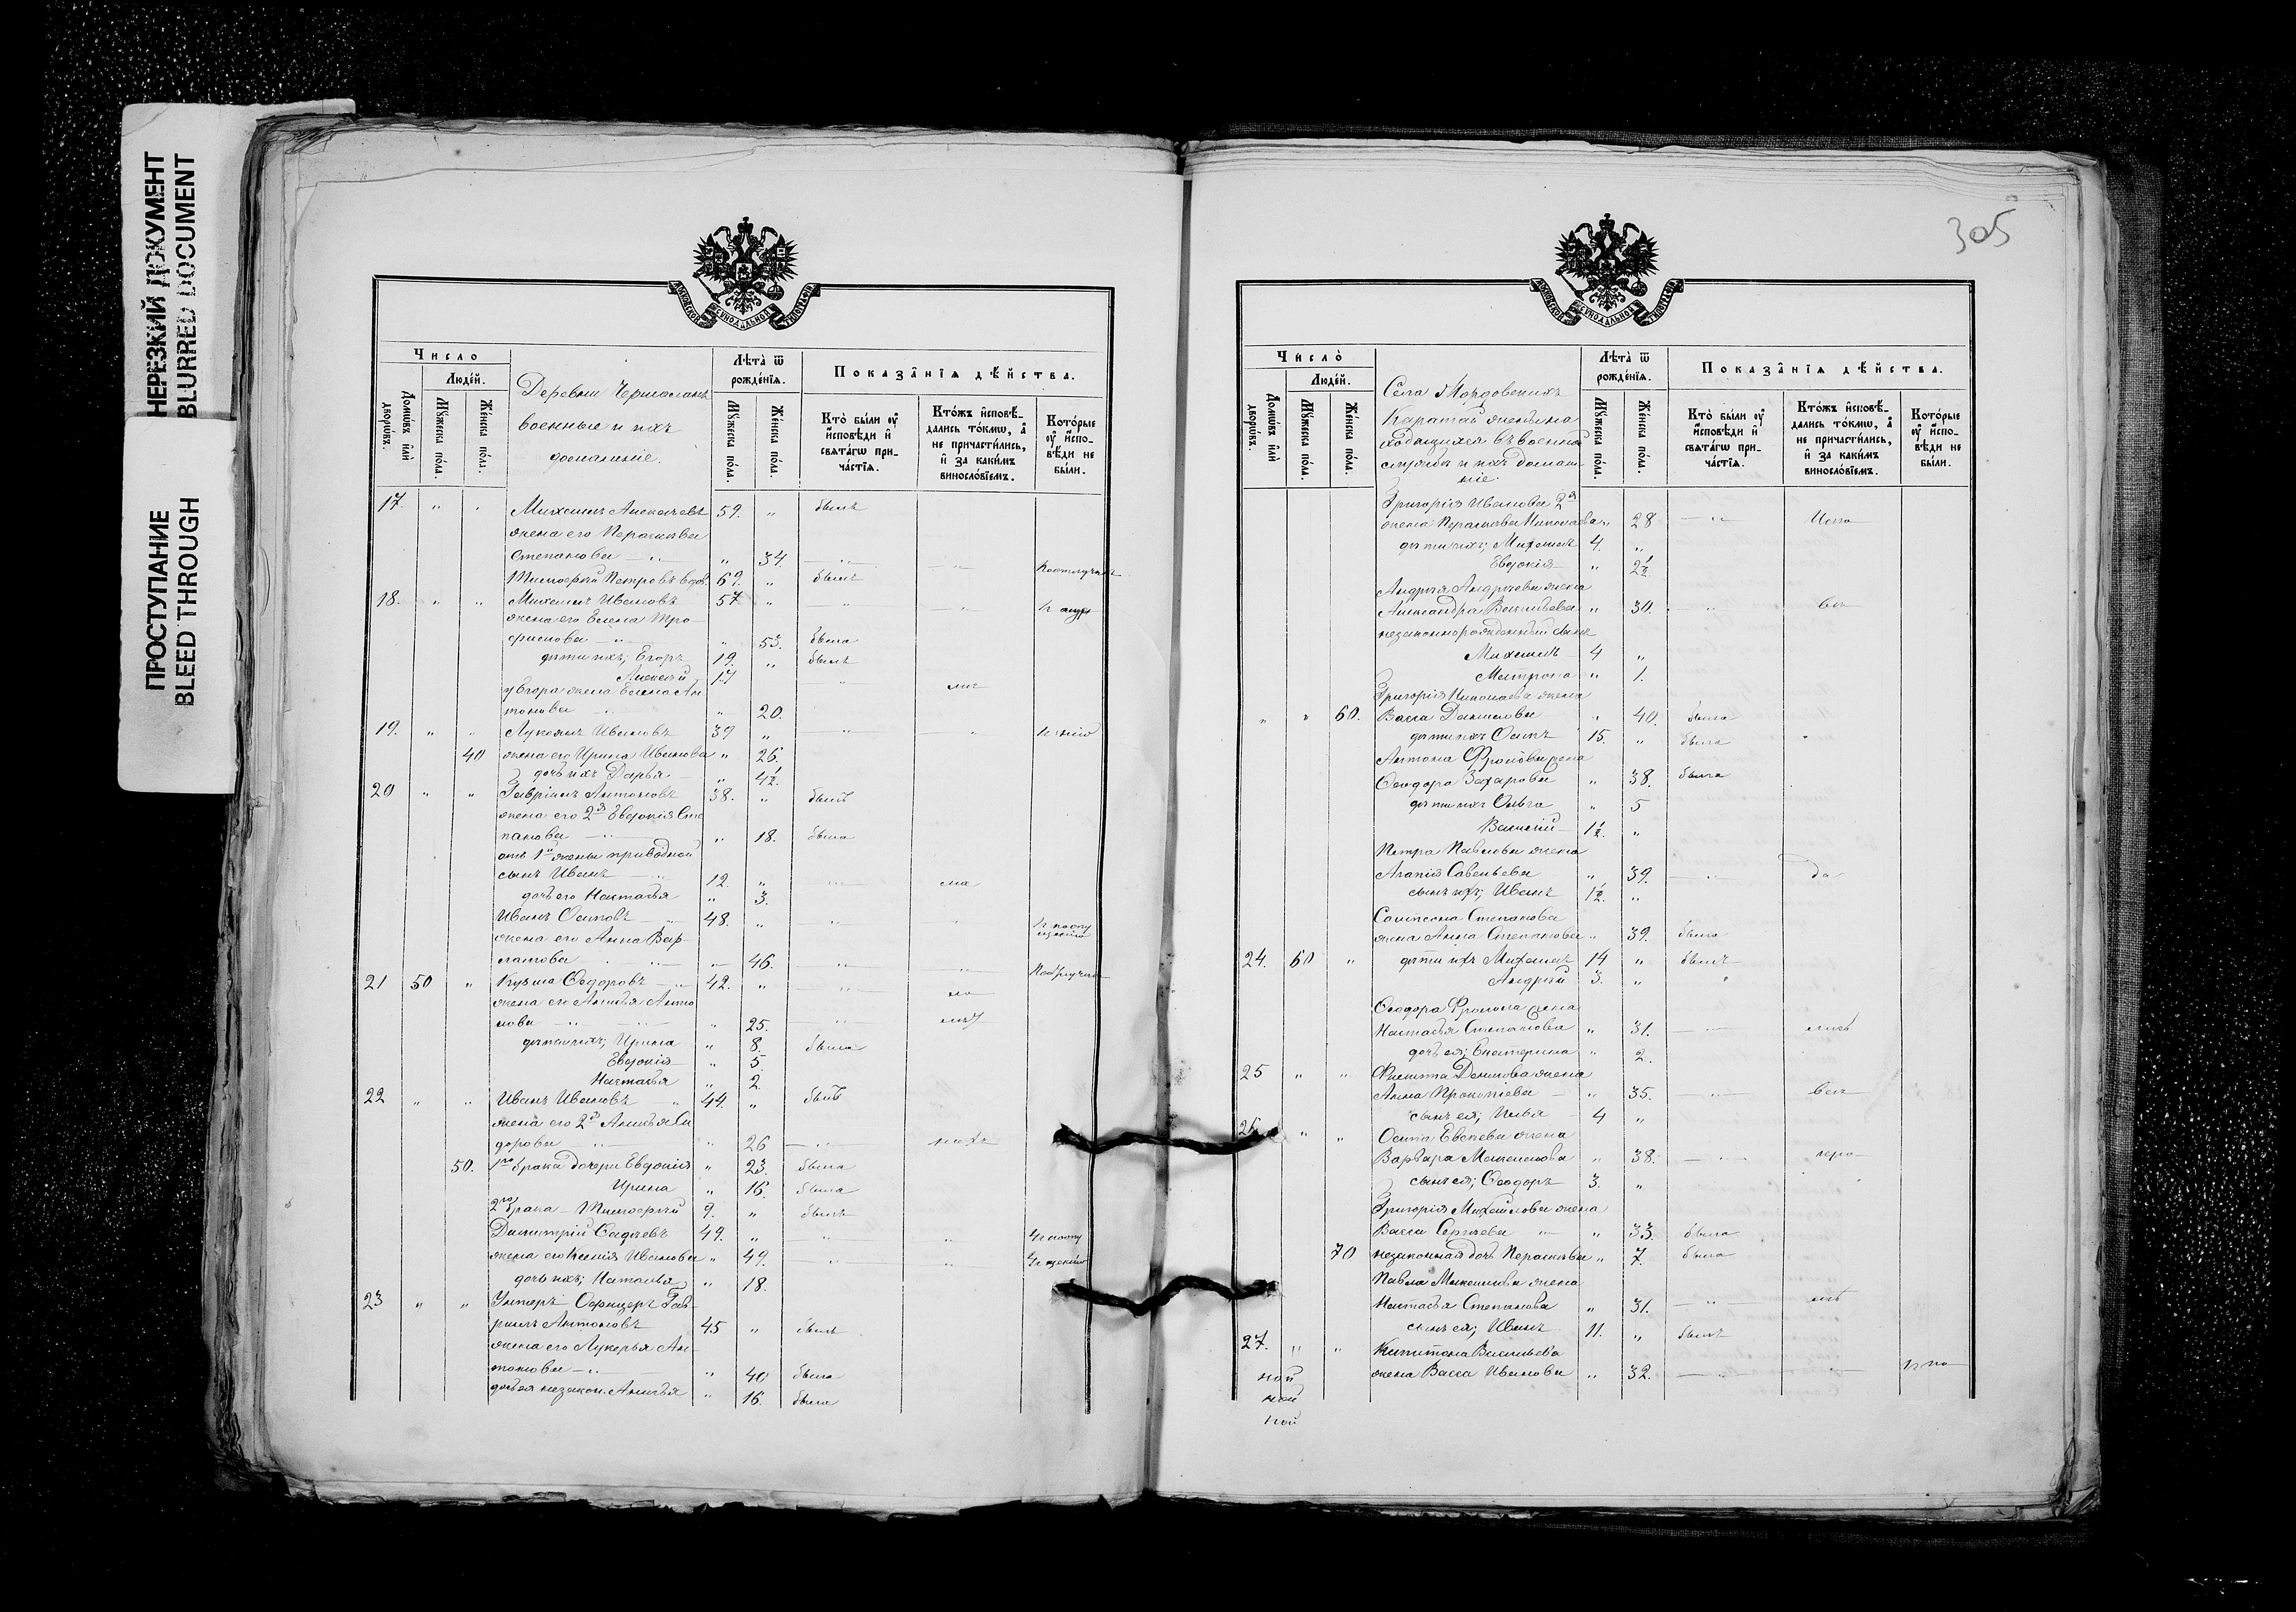 НЕРЕЗКИЙ ДОКУМЕНТ
BLURRED DOCUMENT
ПРОСТУПАНИЕ
BLEED THROUGH
МОСКОВСКОЙ СѴНОДАЛЬНОЙ ТИПОГРАФІИ
Число
Людéй.
Домώвъ илѝ дворώвъ.
Мꙋ́жеска по́ла.
Же́нска по́ла.
Деревни
военные и ихъ
домашніе.
Лѣта̀ ѿ рожде́нїѧ.
Мꙋ́жеска по́ла.
Же́нска по́ла.
Показа̂нїѧ дѣ́йства.
Кто̀ бы́ли ᲂу҆ и҆́сповѣди и҆ свѧта́гѡ при-
ча́стїѧ.
Кто́жъ и҆сповѣ́-
дались то́кмѡ, а҆
не причасти́лись,
и҆ за каки́мъ
винослові́емъ.
Кото́рые
ᲂу҆ и҆́спо-
вѣди не
бы́ли.
17. " " Михаилъ Алексѣевъ 59. " былъ
жена его Параскева
Степанова " 34.
Тимоѳей Петровъ вдов. 69. " былъ
18. " " Михаилъ Ивановъ 57 "
жена его Елена Тро-
фимова " 53. была
дѣти ихъ; Егоръ 19. " былъ
Алексѣй 17
у Егора жена Елена Ан
тонова " 20.
19. " " Лукоянъ Ивановъ 39 "
40 жена его Ирина Иванова " 26.
дочь ихъ Дарья " 4½.
20 " " Гавріилъ Антоновъ 38. " былъ
жена его 2я Евдокія Сте
панова " 18. была
отъ 1й жены приводной
сынъ Иванъ 12. "
дочь его Настасья " 3.
Иванъ Осиповъ 48. "
жена его Анна Вар-
ламова " 46.
21 50 " Кузма Ѳедоровъ 42. "
жена его Анисья Анто
нова " 25.
дѣти ихъ; Ирина " 8. была
Евдокія " 5.
Настасья " 2.
22 " " Иванъ Ивановъ 44. " былъ
жена его 2я Анисья Си
дорова " 26
50. 1го брака дочери Евдокія " 23. была
Ирина " 16. была
2го брака Тимоѳей 9. " былъ
Димитрій 49. "
жена его Ксенія Иванова " 49.
дочь ихъ; Наталья " 18.
23 " " Унтеръ Офицеръ Гав-
рилъ Антоновъ 45 " былъ
жена его Лукерья Ан-
тонова " 40 была
дочь ея незакон. Анисья " 16. была
305
МОСКОВСКОЙ СѴНОДАЛЬНОЙ ТИПОГРАФІИ
Число̀
Людéй.
Домώвъ илѝ дворώвъ.
Мꙋ́жеска по́ла.
Же́нска по́ла.
Села Мордовскихъ
Каратай жены на
ходящихся въ военной
службѣ и ихъ домаш
ніе.
Лѣта̀ ѿ рожде́нїѧ.
Мꙋ́жеска по́ла.
Же́нска по́ла.
Показа̂нїѧ дѣ́йства.
Кто̀ бы́ли ᲂу҆ и҆́сповѣди и҆ свѧта́гѡ при-
ча́стїѧ.
Кто́жъ и҆сповѣ́-
дались то́кмѡ, а҆
не причасти́лись,
и҆ за каки́мъ
винослові́емъ.
Кото́рые
ᲂу҆ и҆́спо-
вѣди не
бы́ли.
Григорія Иванова 2я
жена Параскева Николаева " 28
дѣти ихъ; Михаилъ 4. "
Евдокія " 2½.
Андрея Андреева жена
Александра Васильева " 30.
незаконнорожденный сынъ
Михаилъ 4 "
Матрона " 1.
Григорія Николаева жена
" " 60. Васса Данилова " 40. была
дѣти ихъ Осипъ 15. "
Антона Фролова жена
Ѳеодора Захарова " 38. была
дѣти ихъ Ольга " 5
Василій 1½. "
Петра Павлова жена
Агапія Савельева " 39.
сынъ ихъ; Иванъ 1½. "
Сампсона Степанова
жена Анна Степанова " 39. была
24. 60 " дѣти ихъ Михаилъ 14 " былъ
Андрей 3. "
Ѳеодора Фролова жена
Настасья Степанова " 31.
дочь ея; Екатерина " 2.
25 " " Филиппа Данилова жена
Анна Прокопіева " 35.
сынъ ея; Илья 4 "
26 " " Осипа Евсеева жена
Варвара Максимова " 38.
сынъ ея; Ѳеодоръ 3. "
Григорія Михайлова жена
Васса Сергѣева " 33. была
70 незаконная дочь Параскева " 7. была
Павла Максимова жена
Настасья Степанова " 31.
сынъ ея; Иванъ 11. " былъ
27. " " Капитона Васильева
жена Васса Иванова " 32.